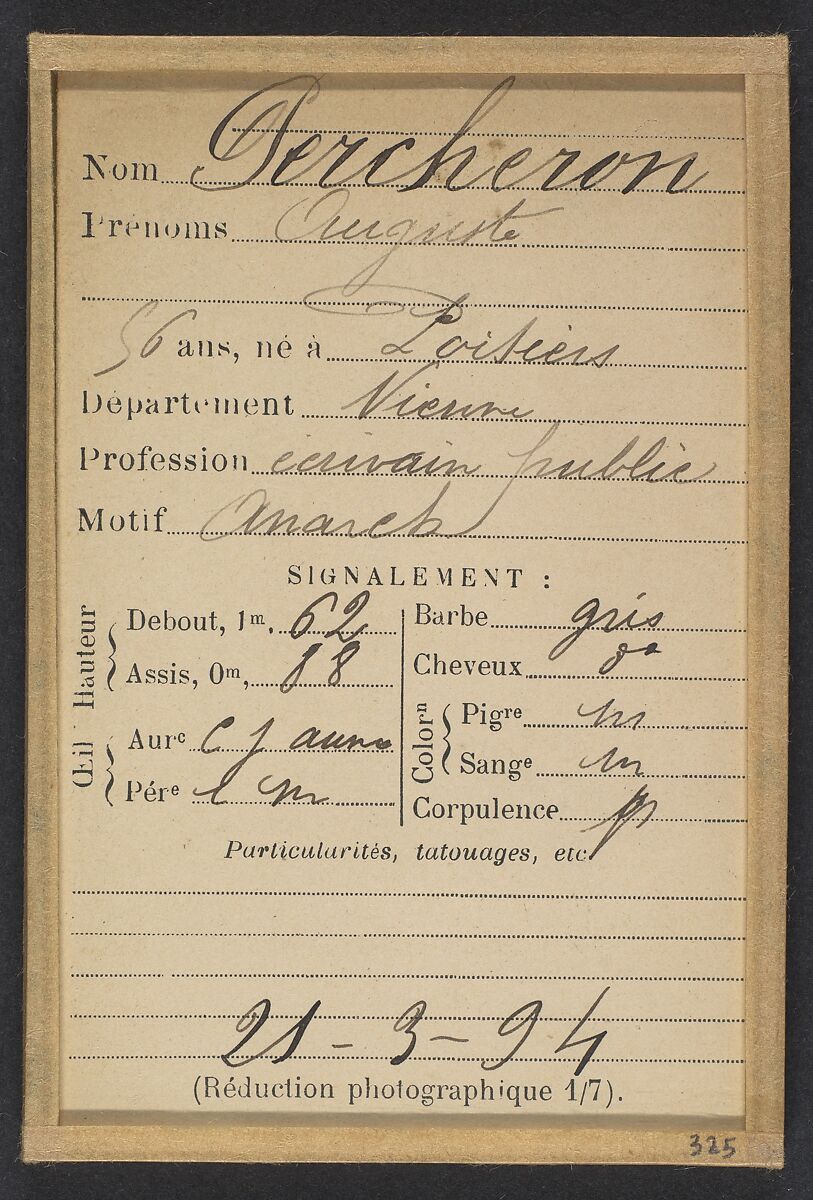 Nom Percheron
Prénoms Auguste
56 ans, né à Poitiers
Département Vienne
Profession écrivain public
Motif Anarch
SIGNALEMENT :
Hauteur
Debout, 1m, 62
Assis, 0m, 88
Œil
Aurc c j aune
Pére l m
Barbe gris
Cheveux do
Colorn
Pigre m
Sange m
Corpulence
Particularités, tatouages, etc.
21-3-94
(Réduction photographique 1/7).
325